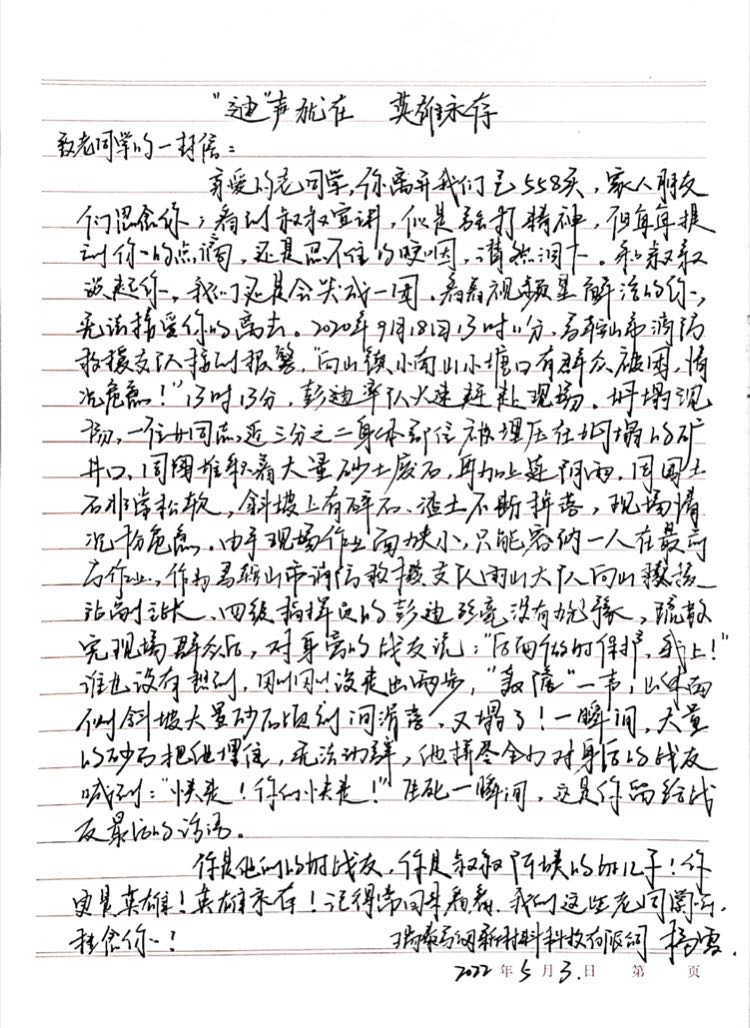 “迪”声犹在 英雄永存
致老同学的一封信:
亲爱的老同学,你离开我们已558天,家人朋友
们思念你;看到叔叔宣讲,似是强打精神,但每每提
到你的点滴,还是忍不住的哽咽,潸然泪下。和叔叔
谈起你,我们还是会哭成一团。看着视频里鲜活的你,
无法接受你的离去。2020年9月18日13时11分,马鞍山市消防
救援支队接到报警,“向山镇小南山小塘口有群众被困,情
况危急!”13时13分,彭迪率队火速赶赴现场。坍塌现
场,一位女同志近三分之二身体部位被埋压在坍塌的矿
井口,周围堆积着大量砂土废石,再加上连阴雨,周围土
石非常松软,斜坡上有碎石、渣土不断掉落,现场情
况十分危急。由于现场作业面狭小,只能容纳一人在最前
方作业,作为马鞍山市消防救援支队雨山大队向山救援
站副站长、四级指挥员的彭迪丝毫没有犹豫,疏散
完现场群众后,对身旁的战友说:“后面做好保护,我上!”
谁也没有想到,刚刚没走出两步,“轰隆”一声,山体西
侧斜坡大量砂石顷刻间滑落,又塌了!一瞬间,大量
的砂石把他埋住,无法动弹,他拼尽全力对身后的战友
喊到:“快走!你们快走!”生死一瞬间,这是你留给战
友最后的话语。
你是他们的好战友,你是叔叔阿姨的好儿子!你
更是英雄!英雄永存!记得常回来看看,我们这些老同学会
挂念你!
瑞泰马钢新材料科技有限公司 杨雪
2022年5月3日 第 页